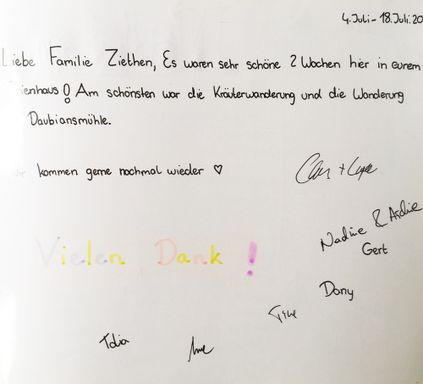 4.Juli - 18.Juli.20
Liebe Familie Ziethen, Es waren sehr schöne 2 Wochen hier in eurem
ienhaus! Am schönsten war die Kräuterwanderung und die Wanderung
Daubiansmühle.
kommen gerne nochmal wieder ♡
Nadine &
Gert
Vielen Dank!
Dony